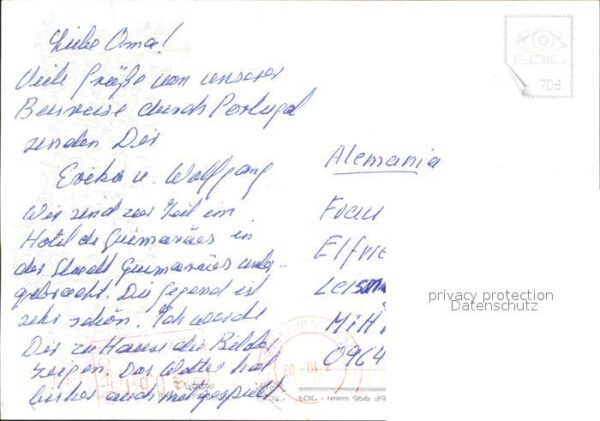 Liebe Oma!
Viele Grüße von unserer
Busreise durch Portugal
senden Dir
Erika u. Wolfgang
Wir sind zur Zeit im
Hotel de Guimarães in
der Stadt Guimarães unter-
gebracht. Die Gegend ist
sehr schön. Ich werde
Dir zu Hause die Bilder
zeigen. Das Wetter hat
bisher auch mitgespielt
Alemania
Frau
Elfrie
MiH
0964
privacy protection
Datenschutz